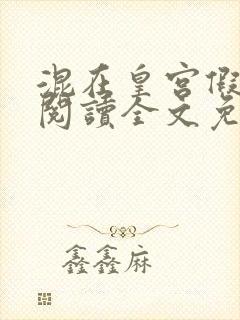 混在皇宮假
閱讀全文免
鑫鑫麻